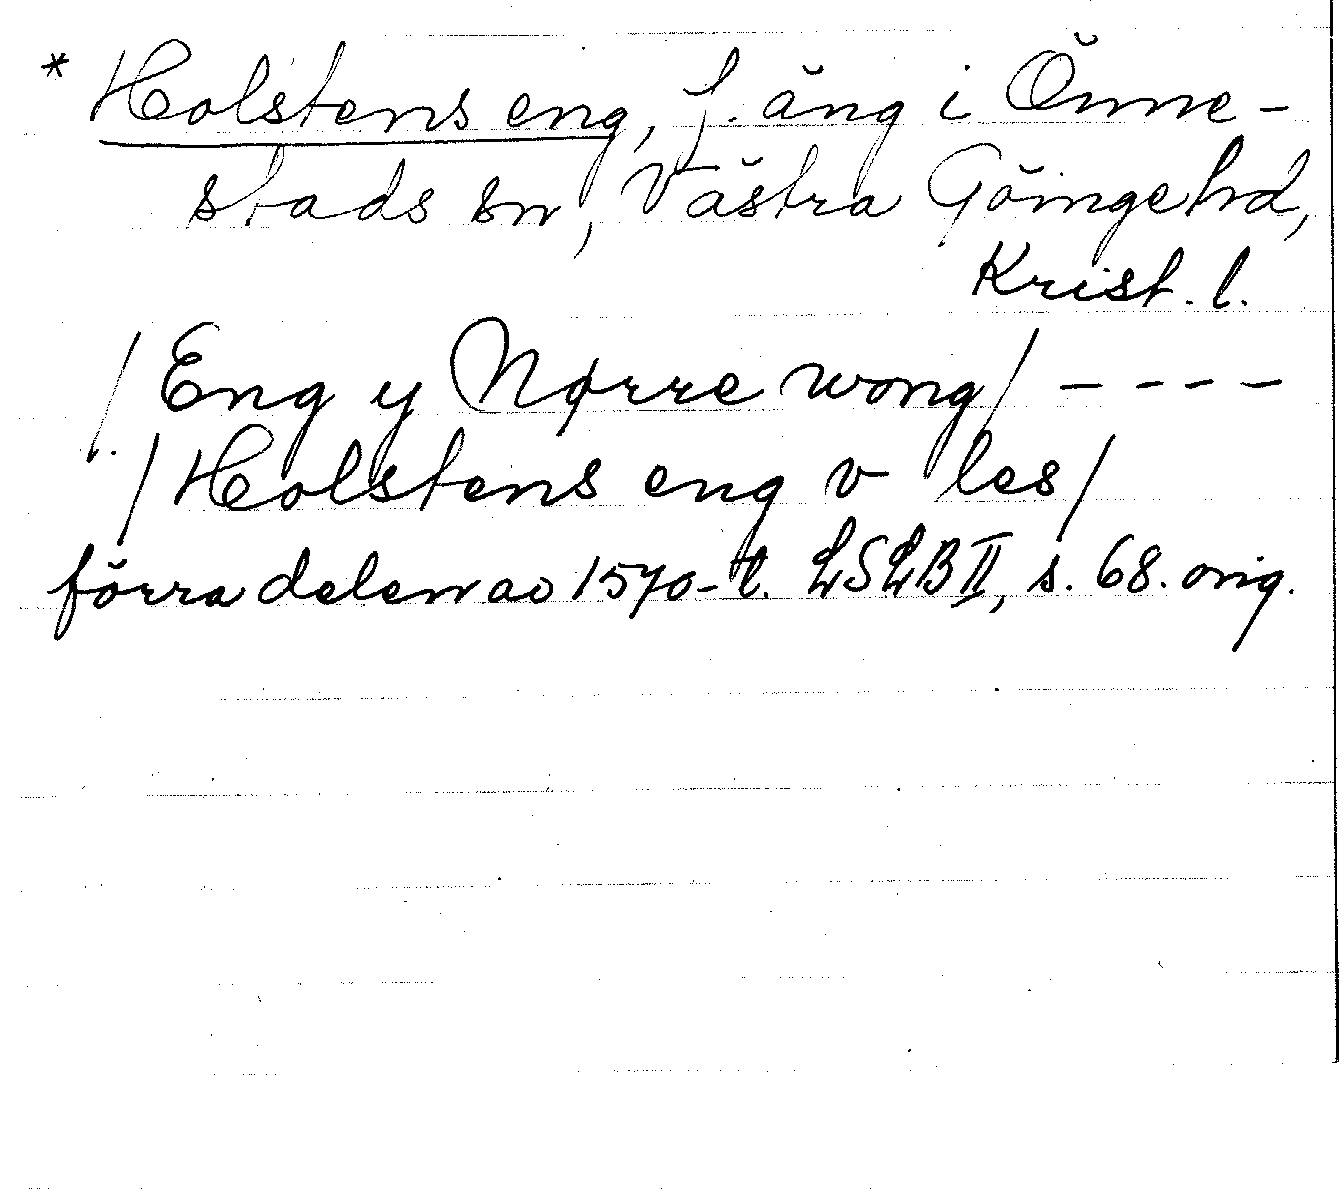 * Holstens eng, f. äng i Önne-
stads sn, Västra Göinge hd,
Krist. l.
/Eng y Nørre wong/ - - - -
/Holstens eng v les/
förra delen av 1570-t. LSLB II, s. 68. orig.